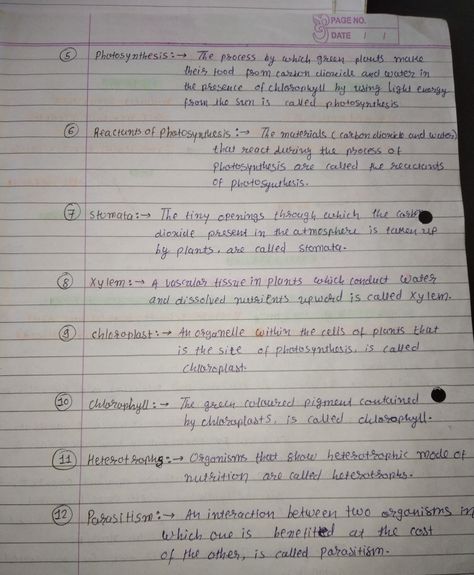 PAGE NO.
DATE / /
5 Photosynthesis:→ The process by which green plants make
their food from carbon dioxide and water in
the presence of chlorophyll by using light energy
from the sun is called photosynthesis
6 Reactants of Photosynthesis:→ The materials (carbon dioxide and water)
that react during the process of
Photosynthesis are called the reactants
of photosynthesis.
7 Stomata:→ The tiny openings through which the carbon
dioxide present in the atmosphere is taken up
by plants, are called stomata.
8 Xylem:→ A vascular tissue in plants which conduct water
and dissolved nutrients upword is called Xylem.
9 Chloroplast:→ An organelle within the cells of plants that
is the site of photosynthesis, is called
chloroplast.
10 Chlorophyll:→ The green coloured pigment contained
by chloroplasts, is called chlorophyll.
11 Heterotrophs:→ Organisms that show heterotrophic mode of
nutrition are called heterotrophs.
12 Parasitism:→ An interaction between two organisms in
which one is benefitted at the cost
of the other, is called parasitism.